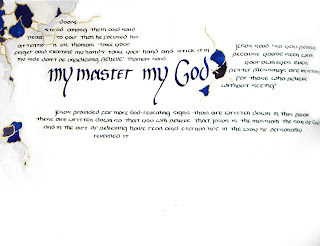 doors
stood among them and said
"peace to you" Then he focused his
attention on Thomas "Take your
finger and examine my hands. Take your hand and stick it in
my side Don't be unbelieving. Believe" Thomas said
my master my God
Jesus said "So you believe
because you've seen with
your own eyes. Even
better blessings are in store
for those who believe
without seeing"
Jesus provided far more God-revealing signs than are written down in this book.
These are written down so that you will believe that Jesus is the Messiah, the son of God
and in the act of believing have real and eternal life in the way he personally
revealed it